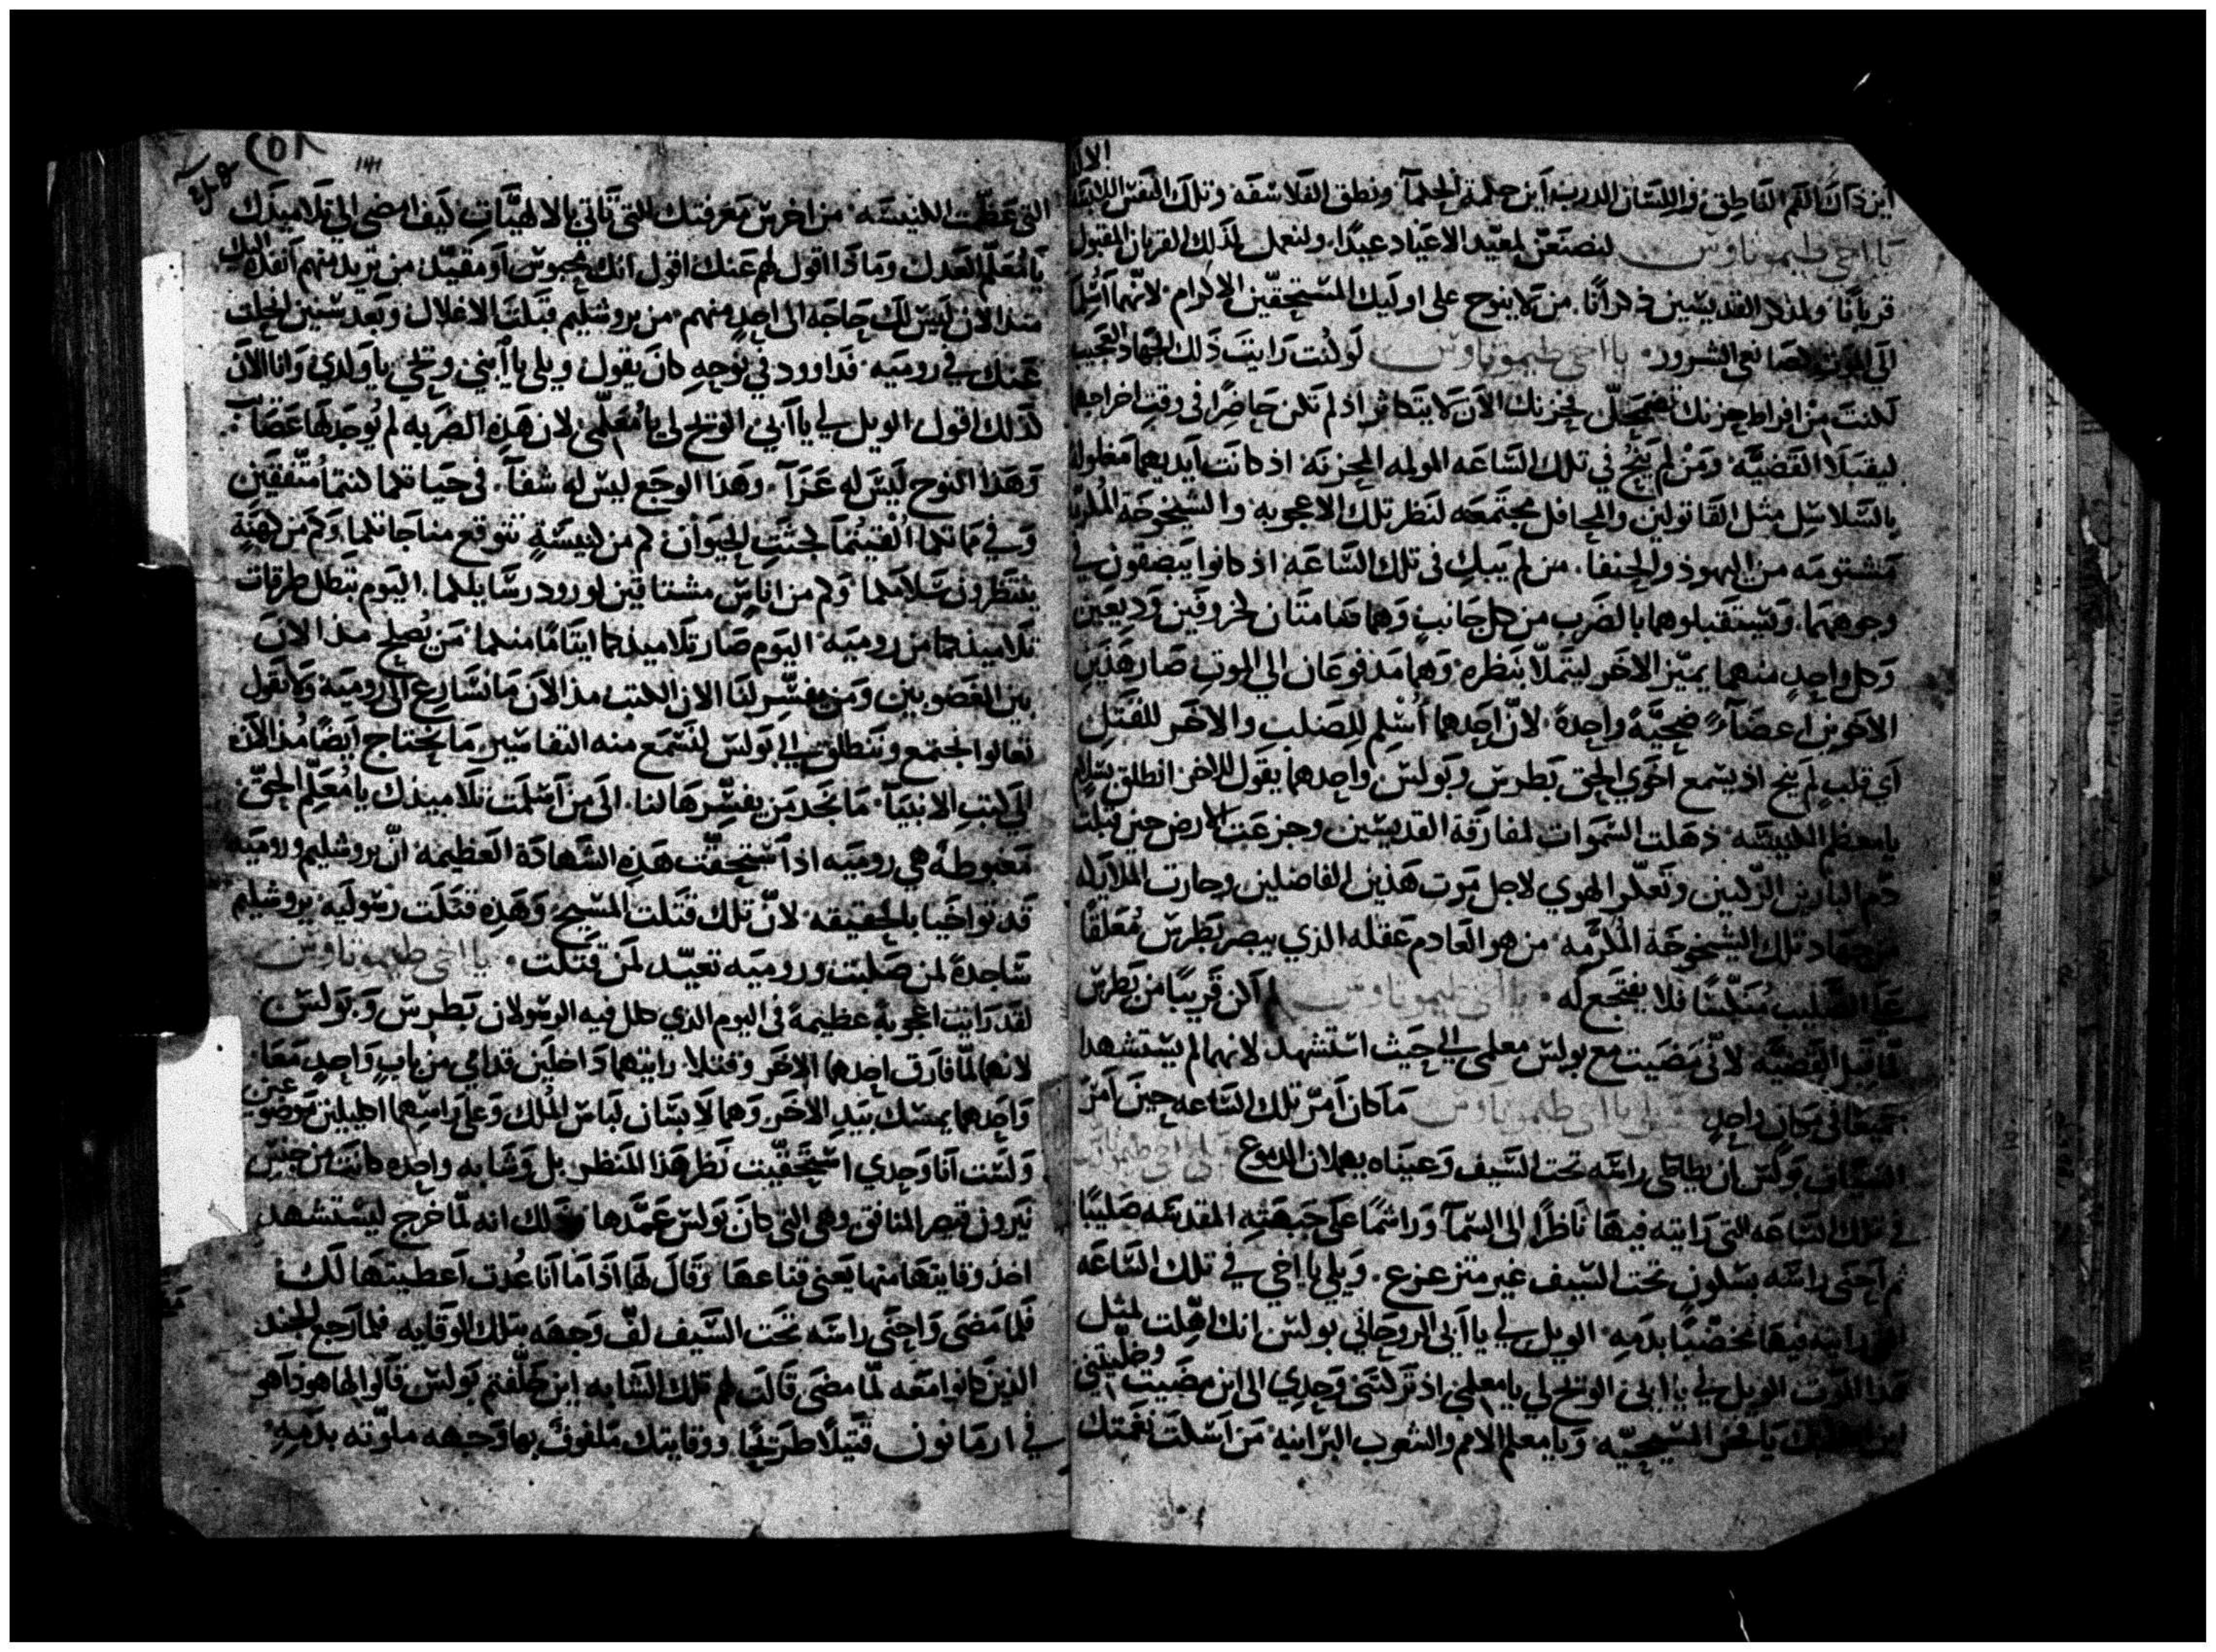 اين ذاك الفم الناطق واللسان الدرب اين حكمة الحكمآ ونطق الفلاسفه وتلك النفس
يا اخي طيموتاوس لنصنعن لمعيّد الاعياد عيدًا ولنعمل لذلك القربان المقبول
قربانًا ولذكر القديسين ذكرانًا من لا ينوح على اوليك المستحقين الاكرام لانهما اسلما
الى الموت كصانعي الشرور يا اخي طيموتاوس لو كنت رايت ذلك الجهاد العجيب
لكنت من افراط حزنك تضمحل فحزنك الآن لا يتكاثر اذ لم تكن حاضرًا في وقت اخراجهما
ليقبلا القضيّه ومن لم ينح في تلك الساعه المولمه المحزنه اذ كانت ايديهما مغلوله
بالسلاسل مثل القاتولين والمحافل مجتمعه لنظر تلك الاعجوبه والشيخوخه المكرمه
مشتومه من اليهود والحنفا من لم يبك في تلك الساعه اذ كانوا يبصقون في
وجوههما ويستقبلوهما بالضرب من كل جانب وهما قيامتان كخروفين وديعين
وكل واحد منهما يميّز الاخر ليتملّا بنظره وهما مدفوعان الى الموت صار هذين
الاخوين اعضآ ضحيّة واحدة لانّ احدهما أسلم للصلب والاخر للقتل
اي قلب لم ينح اذ يسمع اخوي الحق بطرس وبولس واحدهما يقول للاخر انطلق بسلام
يا معظم الكنيسه ذهلت السموات لمفارقة القديسين وجزعت الارض حين قبلت
دم البارين الزكيين وتعكّر الهوى لاجل موت هذين الفاضلين وحارت الملايكه
من جهاد تلك الشيخوخة المكرّمه من هو العادم عقله الذي يبصر بطرس مُعلقًا
على الصليب مُنكّسًا فلا يفتجع له يا اخي طيموتاوس لم اكن قريبًا من بطرس
لمّا قبل القضيّه لانّي مضيت مع بولس معلمي الى حيث استشهد لانهما لم يستشهدا
جميعًا في مكان واحد يا اخي طيموتاوس ما كان امرّ تلك الساعه حين امر
السيّاف بولس ان يطاطي راسه تحت السيف وعيناه يهملان الدموع ويلي يا اخي طيموتاوس
في تلك الساعه التي رايته فيها ناظرًا الى السمآ وراشمًا على جبهته المقدسه صليبًا
ثم احنى راسه بسكون تحت السيف غير متزعزع ويلي يا اخي في تلك الساعه
التي رايته فيها مخضّبًا بدمه الويل لي يا ابي الروحاني بولس انك اهّلت لمثل
هذا الموت الويل لي يا ابي الويح لي يا معلمي اذ تركتني وحدي الى اين مضيت وخليتني
اين اطلبك يا فخر المسيحيّه ويا معلم الامم والشعوب البرانيه من اسكت نغمتك
٢٥٨
١٤١
التي عظّمت الكنيسه من اخرس معرفتك التي تاتي بالالهيّات كيف امضى الى تلاميذك
يا مُعلّم العدل وماذا اقول لهم عنك اقول انك محبوس او مقيّد من تريد منهم انفذه اليك
منذ الان ليس لك حاجه الى احد منهم من يروشليم قبلت الاغلال وبعد سنين الحلّت
عنك في روميه فداوود في نوحه كان يقول ويلي يا ابني وويحي يا ولدي وانا الان
لذلك اقول الويل لي يا ابي الويح لي يا مُعلّمي لان هذه الضربه لم يوجد لها عصابه
وهذا النوح ليس له عزآ وهذا الوجع ليس له شفآ في حياتكما كنتما متّفقين
وفي مماتكما أُلقيتُما كجثث الحيوان كم من كنيسة تتوقع مناجاتكما وكم من كهنة
ينتظرون سلامكما وكم من اناس مشتاقين لورود رسايلكما اليوم تبطل طرقات
تلاميذكما من روميه اليوم صار تلاميذكما ايتامًا منكما من يُصلح منذ الان
بين الغضوبين ومن يفسّر لنا الان الكتب منذ الان ما نسارع الى روميه ولا نقول
تعالوا لنجتمع وننطلق الى بولس لنسمع منه التفاسير ما نحتاج ايضًا منذ الآن
الى كتب الانبيآ ما نجد من يفسّرها لنا الى من اسلمت تلاميذك يا مُعلّم الحقّ
مغبوطة هي روميه اذ استحقّت هذه الشهادة العظيمه انّ يروشليم وروميه
قد تواخيا بالحقيقه لانّ تلك قتلت المسيح وهذه قتلت رسوليه يروشليم
ساجدة لمن صلبت وروميه تعيّد لمن قتلت يا اخي طيموتاوس
لقد رايت اعجوبة عظيمة في اليوم الذي كلل فيه الرسولان بطرس وبولس
لانهما لمّا فارق احدهما الاخر وقتلا رايتهما داخلين قدامي من باب واحد معًا
واحدهما يمسك بيد الاخر وهما لابسان لباس المُلك وعلى راسهما اكليلين موضوعين
ولست انا وحدي استحقّيت نظر هذا المنظر بل وشابه واحده كانت من جنس
نيرون قيصر المنافق وهي التي كان بولس عمّدها وذلك انه لمّا خرج ليستشهد
اخذ وقايتها منها يعني قناعها وقال لها اذا ما انا عُدت اعطيتها لك
فلما مضى واحنى راسه تحت السيف لفّ وجهه بتلك الوقايه فلما رجع الجند
الذين كانوا معه لمّا مضى قالت لهم تلك الشابه اين خلّفتم بولس قالوا لها هوذا هو
في ارمانون قتيلًا طريحًا ووقايتك ملفوف بها وجهه ملوّثه بدمه